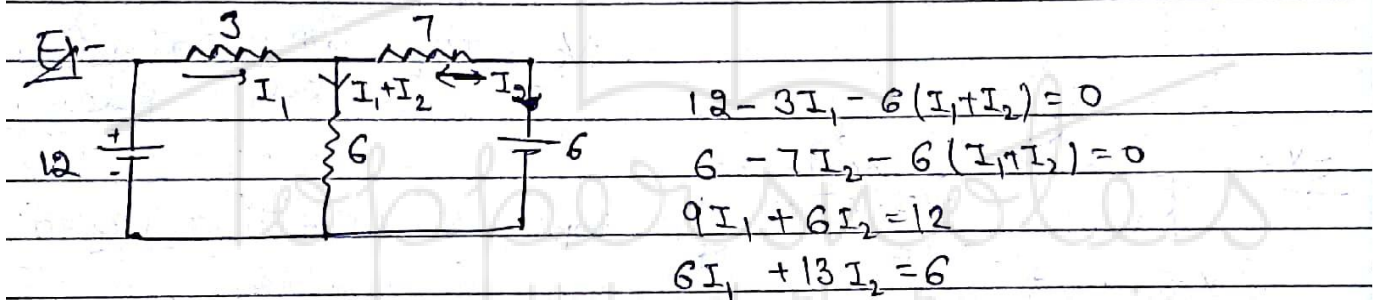 Eg-
3 7
I₁ I₁+I₂ I₂
12 + - 6 6
12 - 3I₁ - 6(I₁+I₂) = 0
6 - 7I₂ - 6(I₁+I₂) = 0
9I₁ + 6I₂ = 12
6I₁ + 13I₂ = 6
Toppersnotes